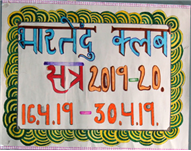 भारतेंदु क्लब
सत्र 2019-20.
16.4.19 - 30.4.19.